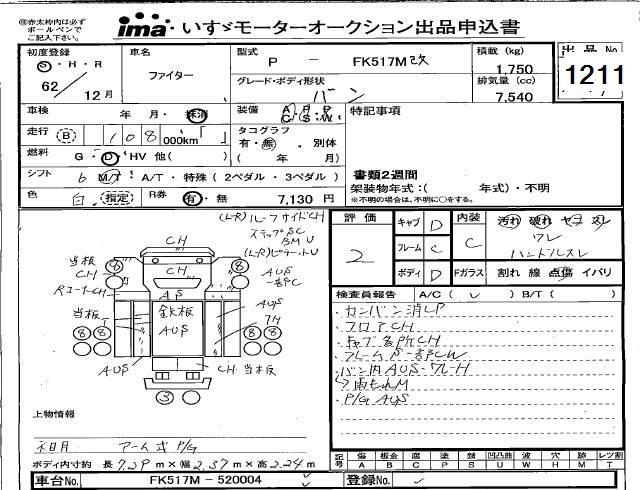 ㊟赤太枠内は必ずボールペンでご記入下さい。
ima いすゞモーターオークション出品申込書
初度登録 S・H・R 62/12月
車名 ファイター
型式 P - FK517M改
積載 (kg) 1,750
出品No. 1211
グレード・ボディ形状 バン
排気量 (cc) 7,540
車検 年 月・抹消
装備 A/C P/S P/W
特記事項
走行 B 108 000km「 」
タコグラフ 有・無 別体 ( 年 月)
燃料 G・D・HV 他( )
書類2週間
シフト 6 M/T・A/T・特殊(2ペダル・3ペダル)
架装物年式:( 年式)・不明
※不明の場合は、不明に○をする。
色 白 指定 R券 有・無 7,130円
(L・R)ルーフサイドCH
ステップSC
BMU
評価 2
キャブ D
フレーム C
ボディ D
内装 C
Fガラス
汚れ 破れ ヤコゲ スレ
ワレ
ハンドルスレ
割れ 線 点傷 イバリ
検査員報告 A/C( ✓ ) B/T( )
・カンバン消しP
・フロアCH
・キャブ各所CH
・バン内AUS・ワレ・H
雨もれM
・P/G AUS
当板
CH
RコーナーCH
当板
CH
CH
AS
鉄板
AUS
AUS
一部C
AUS
7H
AUS
CH
CH 当板
8
8
8 8
8 8
3
上物情報
アーム式P/G
ボディ内寸約 長 7.29 m×幅 2.37 m×高 2.24 m
記号 傷 A 板金 B 腐 C 塗 P 錆 S 凹凸曲 U 波 W 穴 H 跡 M レツ割 T
車台No. FK517M－520004
登録No.